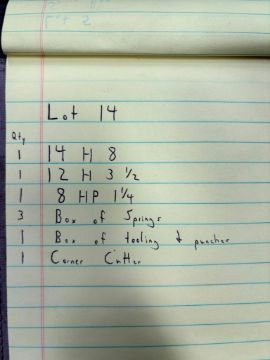 Lot 14
Qty
1 14 H 8
1 12 H 3 1/2
1 8 HP 1 1/4
3 Box of Springs
1 Box of tooling & punches
1 Corner Cutter